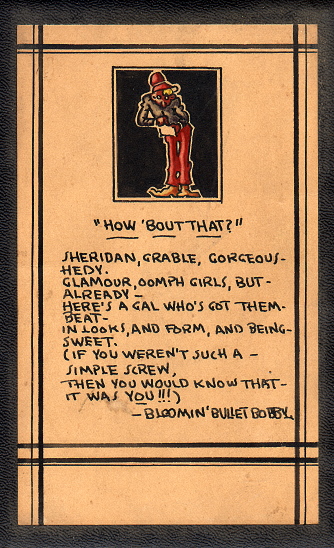 "HOW 'BOUT THAT?"
SHERIDAN, GRABLE, GORGEOUS-
HEDY.
GLAMOUR, OOMPH GIRLS, BUT-
ALREADY-
HERE'S A GAL WHO'S GOT THEM-
BEAT-
IN LOOKS, AND FORM, AND BEING-
SWEET.
(IF YOU WEREN'T SUCH A-
SIMPLE SCREW,
THEN YOU WOULD KNOW THAT-
IT WAS YOU!!!)
-BLOOMIN' BULLET BOBBY.